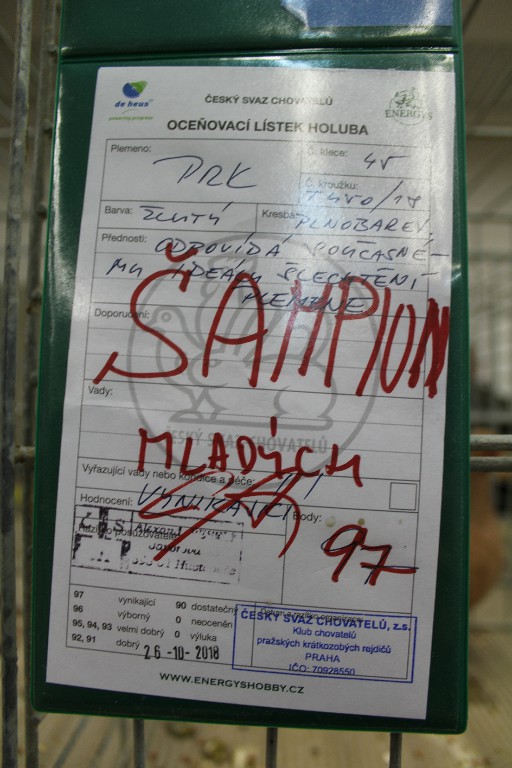 de heus
powering progress
ČESKÝ SVAZ CHOVATELŮ
ENERGYS
OCEŇOVACÍ LÍSTEK HOLUBA
Plemeno: PRK
Č. klece: 45
Č. kroužku:
Barva: ŽLUTÝ
Kresba: PLNOBAREV.
Přednosti: ODPOVÍDÁ SOUČASNÉ-
MU IDEÁLU ŠLECHTĚNÍ
PLEMENE
Doporučení:
ŠAMPION
Vady:
ČESKÝ SVAZ CHOVATELŮ
MLADÝCH
Vyřazující vady nebo kondice a péče:
Hodnocení: VYNIKAJÍCÍ
Body:
97
97 vynikající 90 dostatečný
96 výborný 0 neoceněn
95, 94, 93 velmi dobrý 0 výluka
92, 91 dobrý
26-10-2018
ČESKÝ SVAZ CHOVATELŮ, z.s.
Klub chovatelů
pražských krátkozobých rejdičů
PRAHA
IČO: 70928550
WWW.ENERGYSHOBBY.CZ